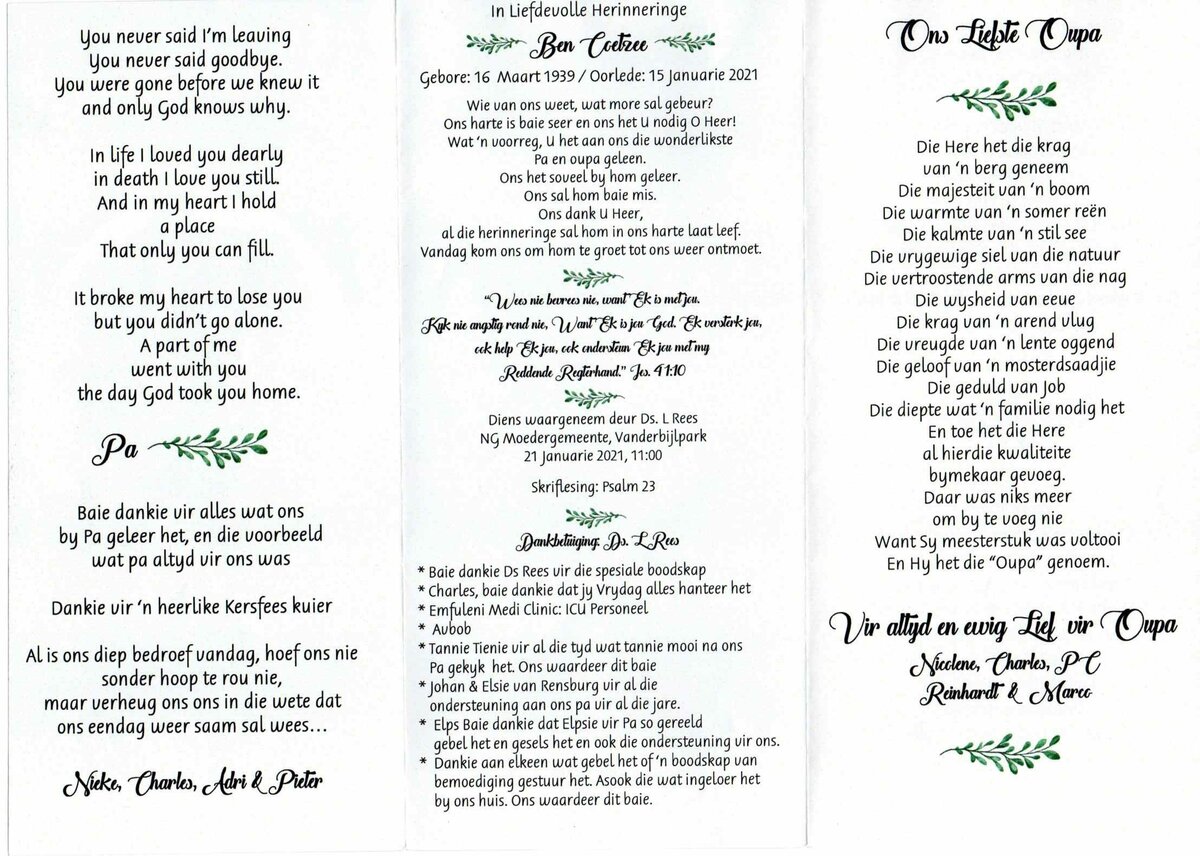 You never said I'm leaving
You never said goodbye.
You were gone before we knew it
and only God knows why.
In life I loved you dearly
in death I love you still.
And in my heart I hold
a place
That only you can fill.
It broke my heart to lose you
but you didn't go alone.
A part of me
went with you
the day God took you home.
Pa
Baie dankie vir alles wat ons
by Pa geleer het, en die voorbeeld
wat pa altyd vir ons was
Dankie vir 'n heerlike Kersfees kuier
Al is ons diep bedroef vandag, hoef ons nie
sonder hoop te rou nie,
maar verheug ons ons in die wete dat
ons eendag weer saam sal wees...
Nieke, Charles, Adri & Pieter
In Liefdevolle Herinneringe
Ben Coetzee
Gebore: 16 Maart 1939 / Oorlede: 15 Januarie 2021
Wie van ons weet, wat more sal gebeur?
Ons harte is baie seer en ons het U nodig O Heer!
Wat 'n voorreg, U het aan ons die wonderlikste
Pa en oupa geleen.
Ons het soveel by hom geleer.
Ons sal hom baie mis.
Ons dank U Heer,
al die herinneringe sal hom in ons harte laat leef.
Vandag kom ons om hom te groet tot ons weer ontmoet.
"Wees nie bevrees nie, want Ek is met jou.
Kyk nie angstig rond nie, Want Ek is jou God. Ek versterk jou,
ook help Ek jou, ook ondersteun Ek jou met my
Reddende Regterhand." Jes. 41:10
Diens waargeneem deur Ds. L Rees
NG Moedergemeente, Vanderbijlpark
21 Januarie 2021, 11:00
Skriflesing: Psalm 23
Dankbetuiging: Ds. L Rees
* Baie dankie Ds Rees vir die spesiale boodskap
* Charles, baie dankie dat jy Vrydag alles hanteer het
* Emfuleni Medi Clinic: ICU Personeel
* Aubob
* Tannie Tienie vir al die tyd wat tannie mooi na ons
Pa gekyk het. Ons waardeer dit baie
* Johan & Elsie van Rensburg vir al die
ondersteuning aan ons pa vir al die jare.
* Elps Baie dankie dat Elpsie vir Pa so gereeld
gebel het en gesels het en ook die ondersteuning vir ons.
* Dankie aan elkeen wat gebel het of 'n boodskap van
bemoediging gestuur het. Asook die wat ingeloer het
by ons huis. Ons waardeer dit baie.
Ons Liefste Oupa
Die Here het die krag
van 'n berg geneem
Die majesteit van 'n boom
Die warmte van 'n somer reën
Die kalmte van 'n stil see
Die vrygewige siel van die natuur
Die vertroostende arms van die nag
Die wysheid van eeue
Die krag van 'n arend vlug
Die vreugde van 'n lente oggend
Die geloof van 'n mosterdsaadjie
Die geduld van Job
Die diepte wat 'n familie nodig het
En toe het die Here
al hierdie kwaliteite
bymekaar gevoeg.
Daar was niks meer
om by te voeg nie
Want Sy meesterstuk was voltooi
En Hy het die "Oupa" genoem.
Vir altyd en ewig Lief vir Oupa
Nicolene, Charles, PC
Reinhardt & Marco